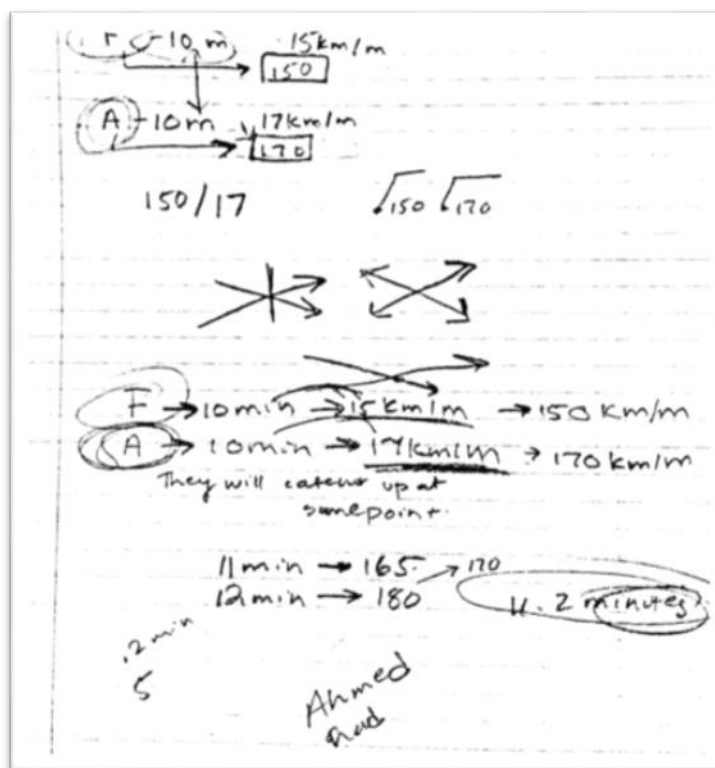 F -10 m 15km/m
150
A -10m 17km/m
170
150/17 150 170
F → 10min → 15km/m → 150 km/m
A → 10min → 17km/m → 170 km/m
They will up at
some point.
11min → 165 → 170
12min → 180 11.2 minutes
.2 min
5
Ahmed